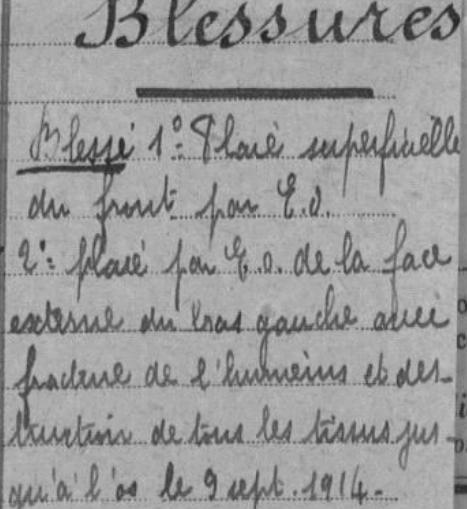 Blessures
Blessé 1º: Plaie superficielle
du front par E.O.
2º: plaie par E.O. de la face
externe du bras gauche avec
fracture de l'humérus et des-
truction de tous les tissus jus-
qu'à l'os le 9 sept. 1914.